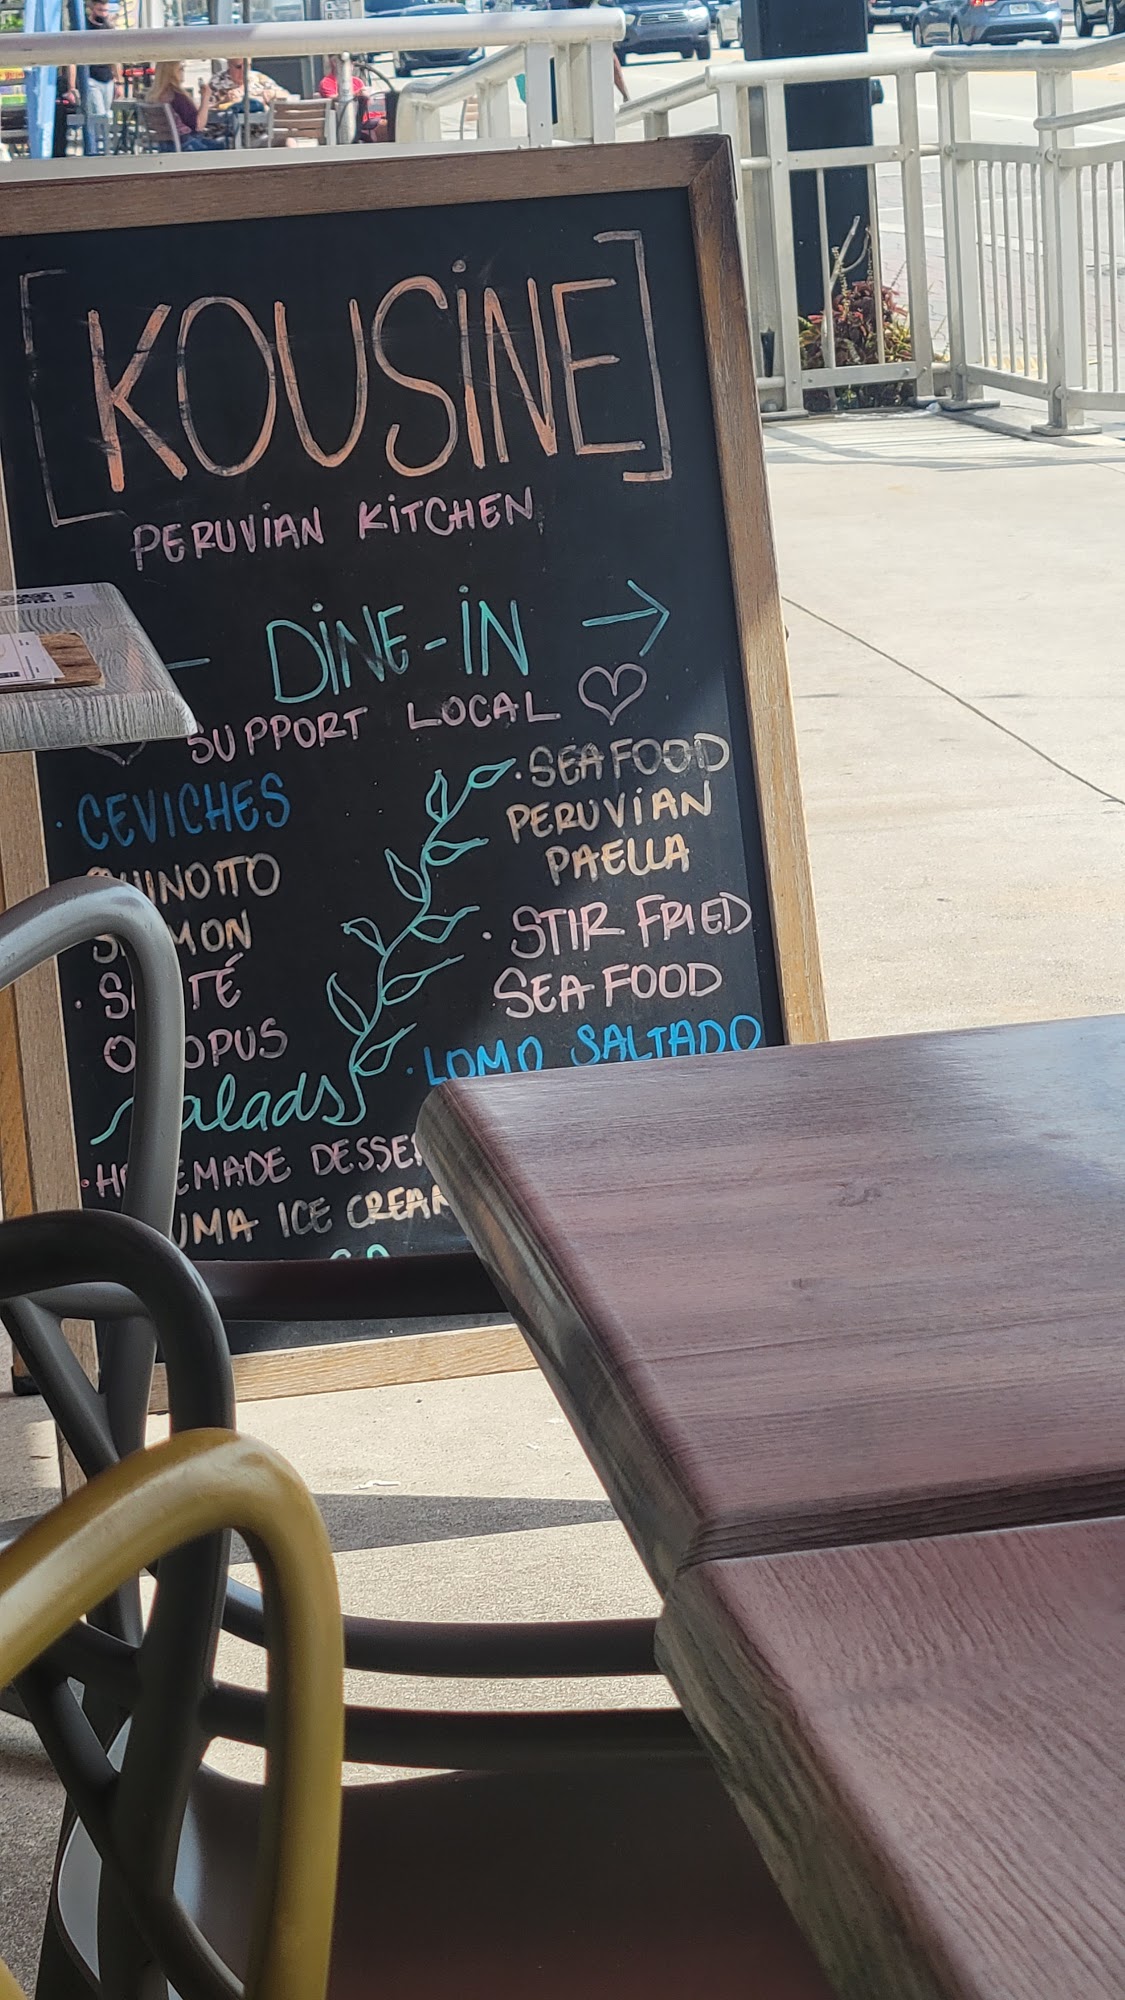 [KOUSINE]
PERUVIAN KITCHEN
DINE-IN →
SUPPORT LOCAL ♡
· CEVICHES
QUINOTTO
SALMON
· SAUTÉ
OCTOPUS
Salads
· HOMEMADE
ICE CREAM
· SEAFOOD
PERUVIAN
PAELLA
· STIR FRIED
SEAFOOD
· LOMO SALTADO